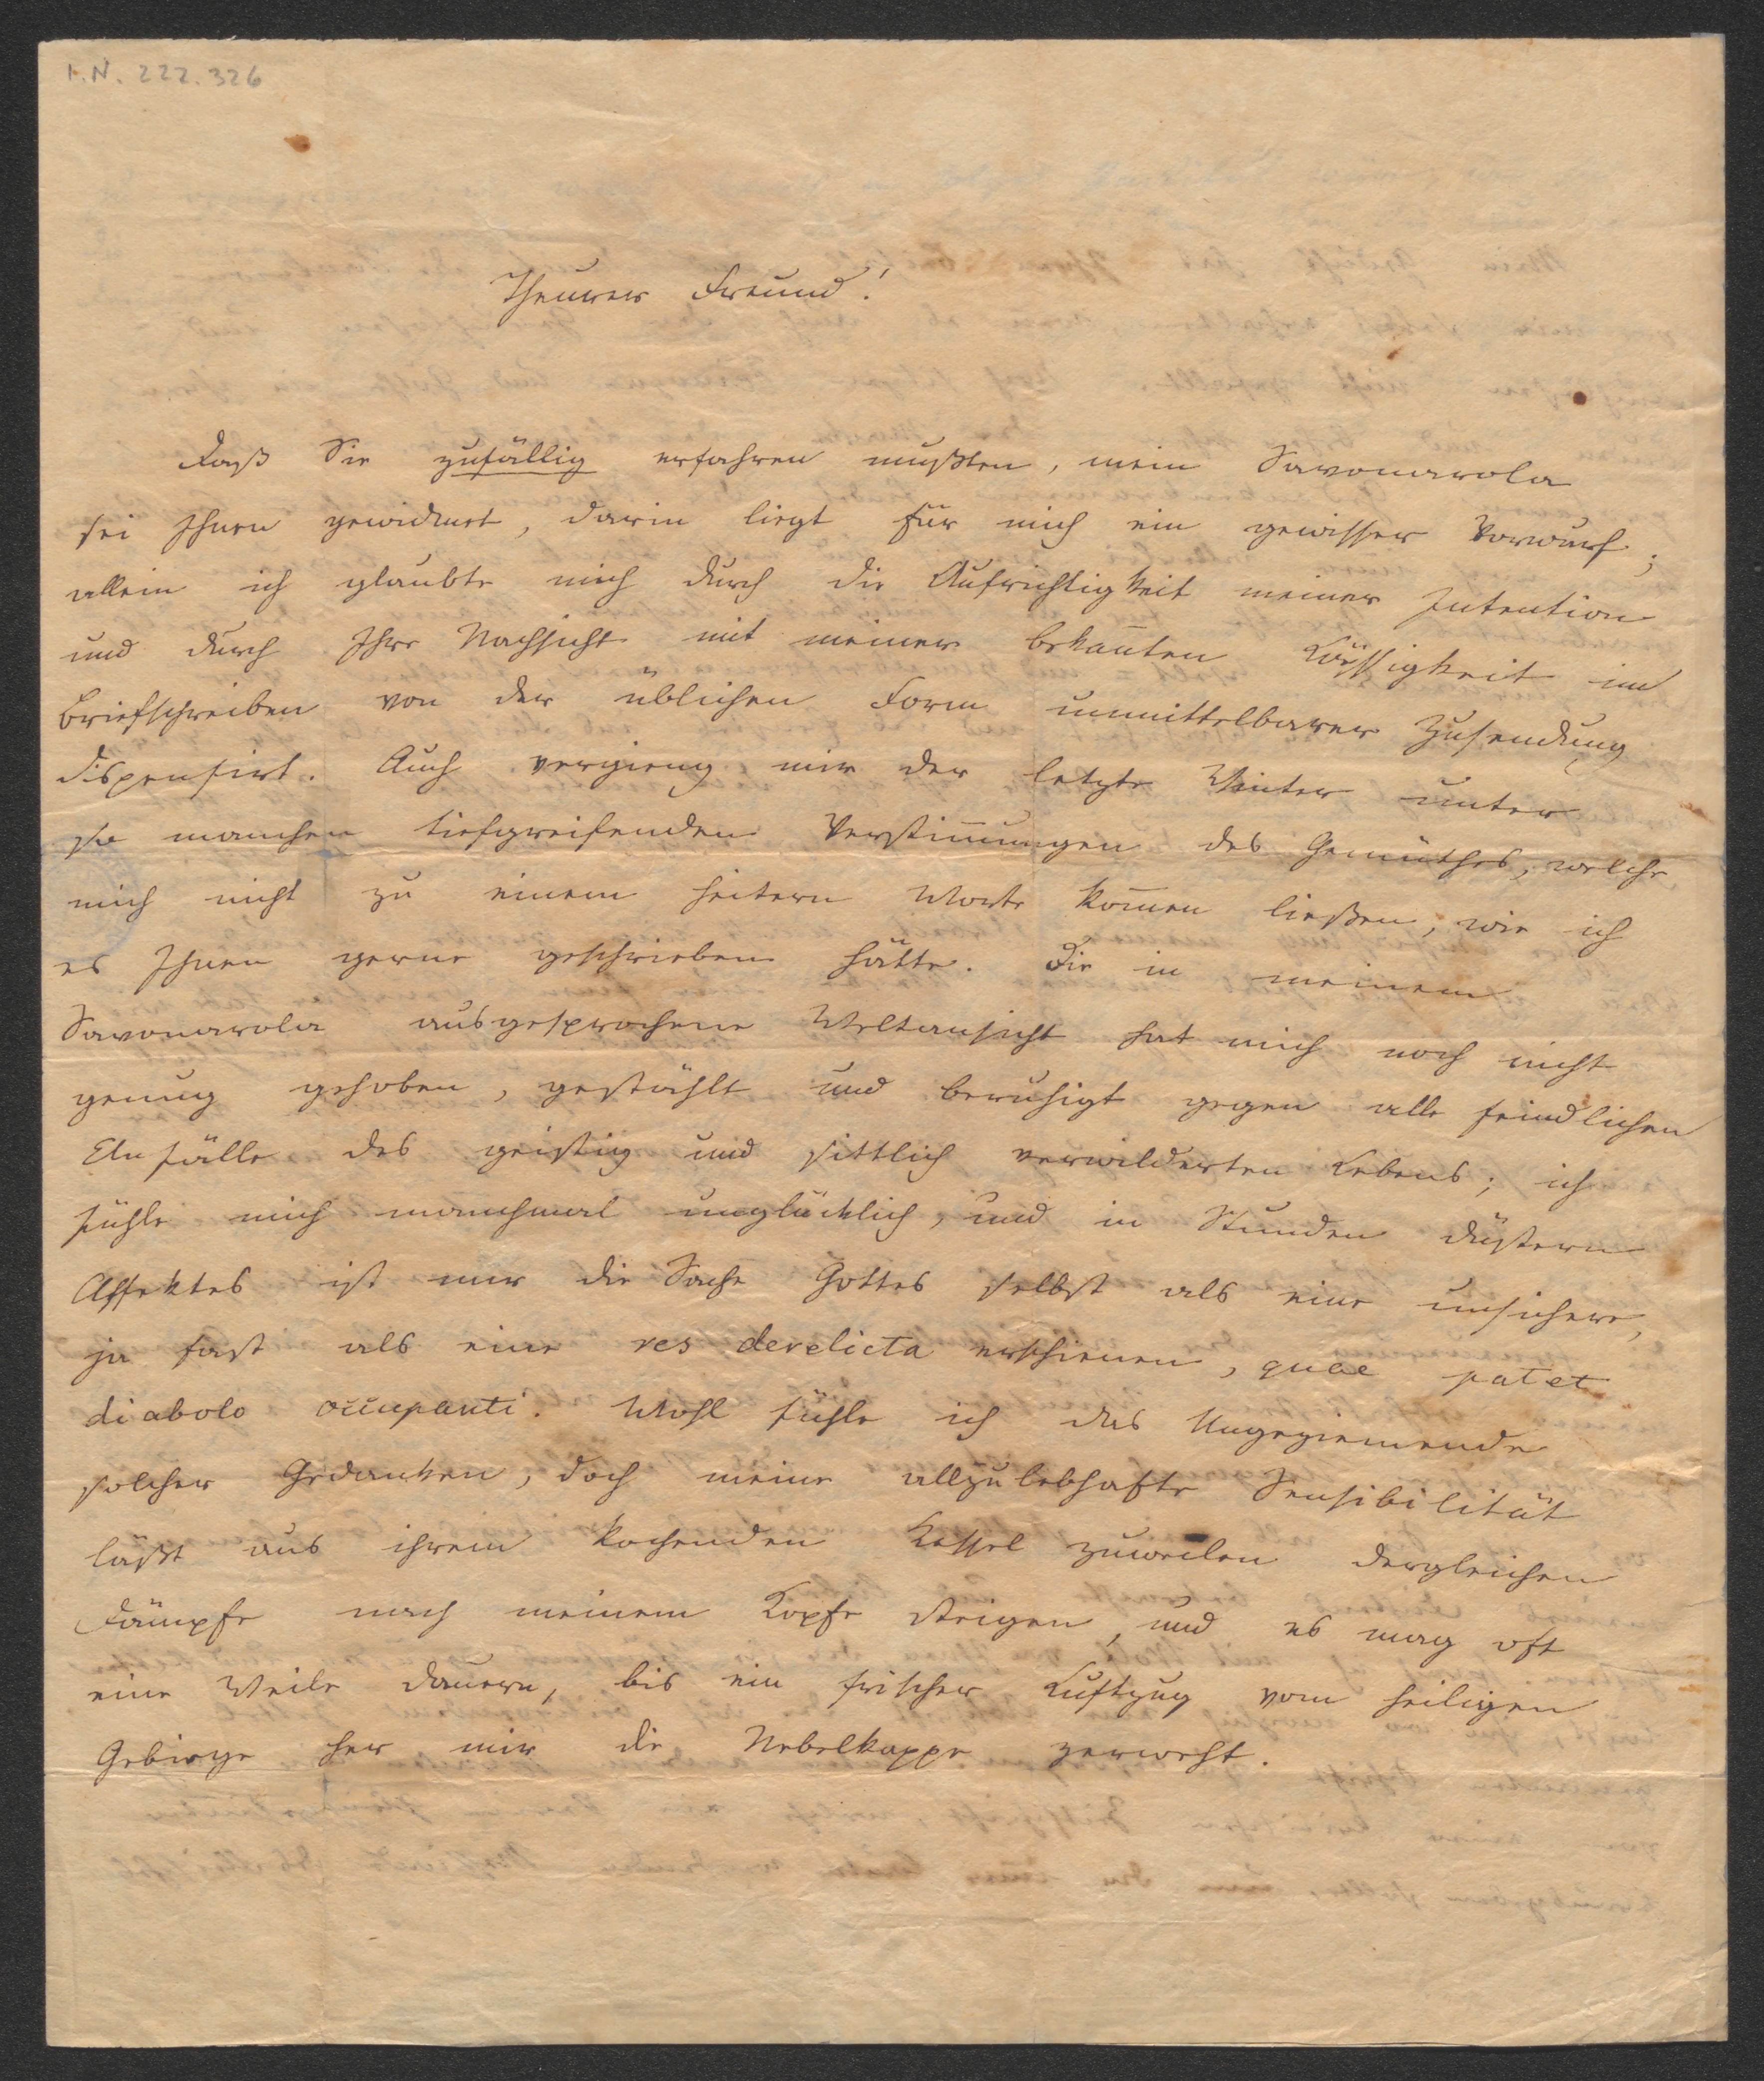 I.N. 222.326
Theurer Freund!
Daß Sie zufällig erfahren mußten, mein Savonarola
sei Ihnen gewidmet, darin liegt für mich ein gewisser Vorwurf;
allein ich glaubte mich durch die Aufrichtigkeit meiner Intention
und durch Ihre Nachsicht mit meiner bekan̄ten Läßigkeit im
Briefschreiben von der üblichen Form unmittelbarer Zusendung
dispensirt. Auch vergieng mir der letzte Winter unter
so manchen tiefgreifenden Verstim̄ungen des Gemüthes, welche
mich nicht zu einem heitern Worte kom̄en ließen, wie ich
es Ihnen gerne geschrieben hätte. Die in meinem
Savonarola ausgesprochene Weltansicht hat mich noch nicht
genug gehoben, gestählt und beruhigt gegen alle feindlichen
Einfälle des geistig und sittlich verwilderten Lebens; ich
fühle mich manchmal unglücklich, und in Stunden düstern
Affektes ist mir die Sache Gottes selbst als eine unsichere,
ja fast als eine res derelicta erschienen, quae patet
diabolo occupanti. Wohl fühle ich das Ungeziemende
solcher Gedanken, doch meine allzulebhafte Sensibilität
läßt aus ihrem kochenden Kessel zuweilen dergleichen
Dämpfe nach meinem Kopfe steigen, und es mag oft
eine Weile dauern, bis ein frischer Luftzug vom heiligen
Gebirge her mir die Nebelkappe zerweht.